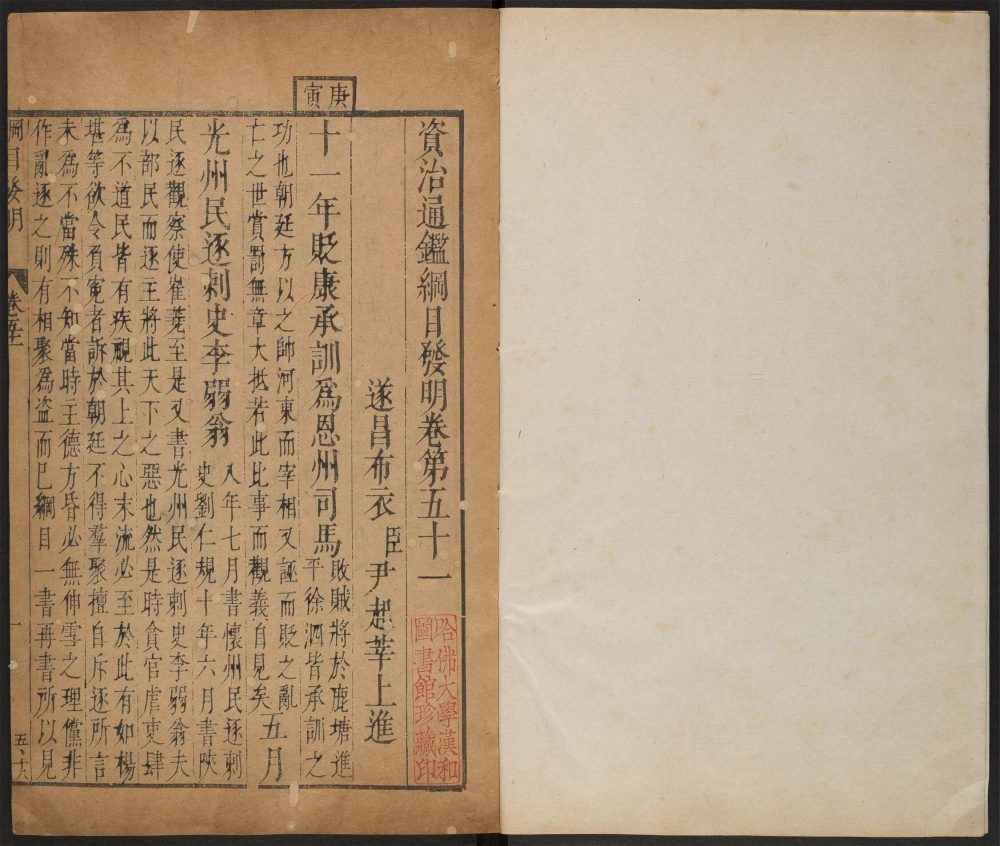 庚寅
資治通鑑綱目發明卷第五十一
遂昌布衣臣尹起莘上進
十一年貶康承訓爲恩州司馬
敗賊將於鹿塘進
平徐泗皆承訓之
功也朝廷方以之帥河東而宰相又誣而貶之亂
亡之世賞罰無章大抵若此比事而觀義自見矣五月
光州民逐刺史李弱翁
八年七月書懷州民逐刺
史劉仁規十年六月書陝
民逐觀察使崔蕘至是又書光州民逐刺史李弱翁夫
以部民而逐主將此天下之惡也然是時貪官虐吏肆
爲不道民皆有疾視其上之心末流必至於此有如楊
堪等欲令負寃者訴於朝廷不得羣聚擅自斥逐所言
未爲不當殊不知當時主德方昏必無伸雪之理儻非
作亂逐之則有相聚爲盜而巳綱目一書再書所以見
綱目發明
卷五十一
一
哈佛大學漢和
圖書館珍藏印